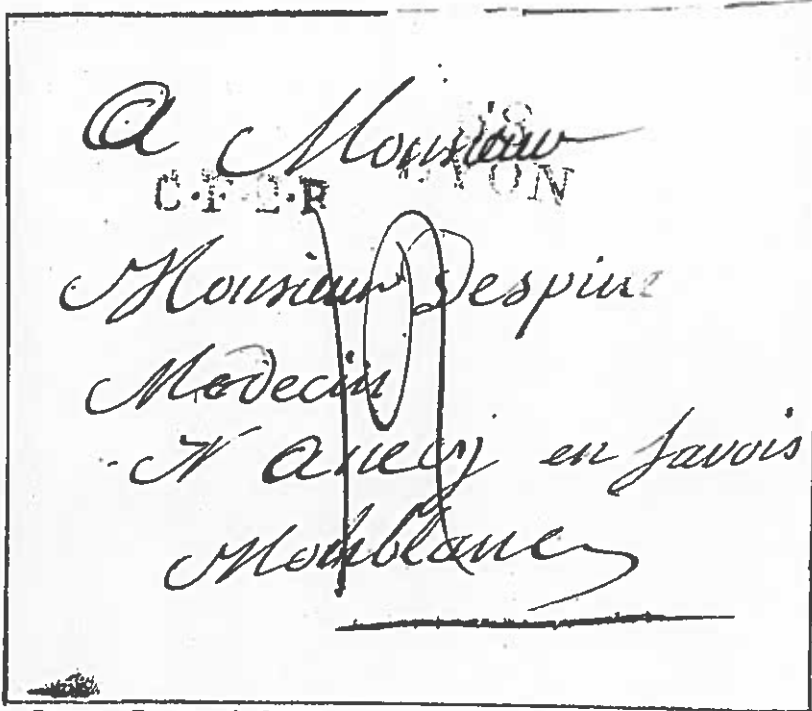 A Monsieur
C.F.3.R LYON
Monsieur Despine
Medecin
N anecy en Savois
Monblanc